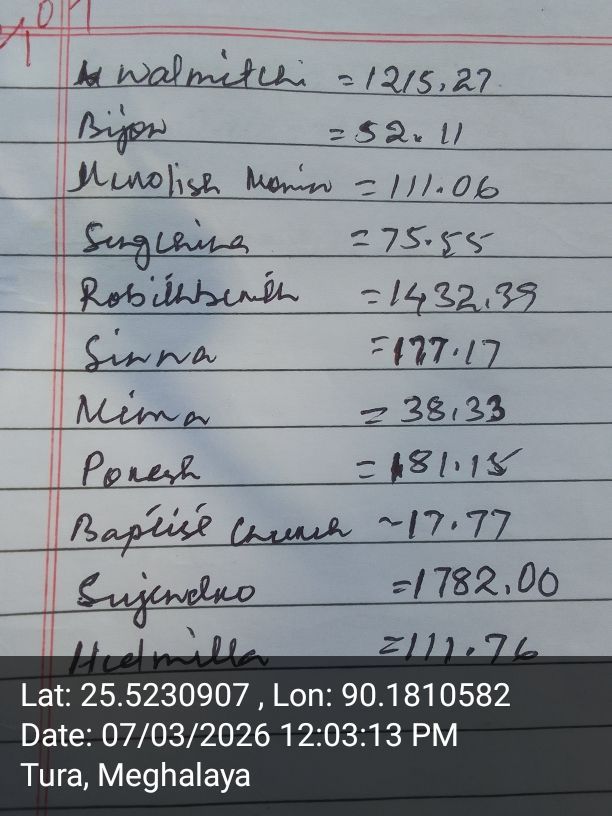 Walmitchi = 1215.27
Bijon = 52.11
Momin = 111.06
Sengchina = 75.55
= 1432.39
Sinna = 177.17
Mima = 38.33
Ponesh = 181.15
Baptist Church ~ 17.77
Sujendro = 1782.00
Hedmilla = 111.76
Lat: 25.5230907 , Lon: 90.1810582
Date: 07/03/2026 12:03:13 PM
Tura, Meghalaya